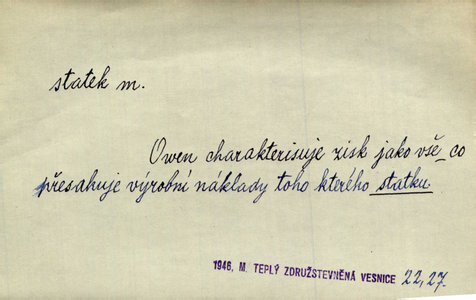 statek m.
Owen charakterisuje zisk jako vše_co
přesahuje výrobní náklady toho kterého statku
1946, M. TEPLÝ ZDRUŽSTEVNĚNÁ VESNICE 22,27.